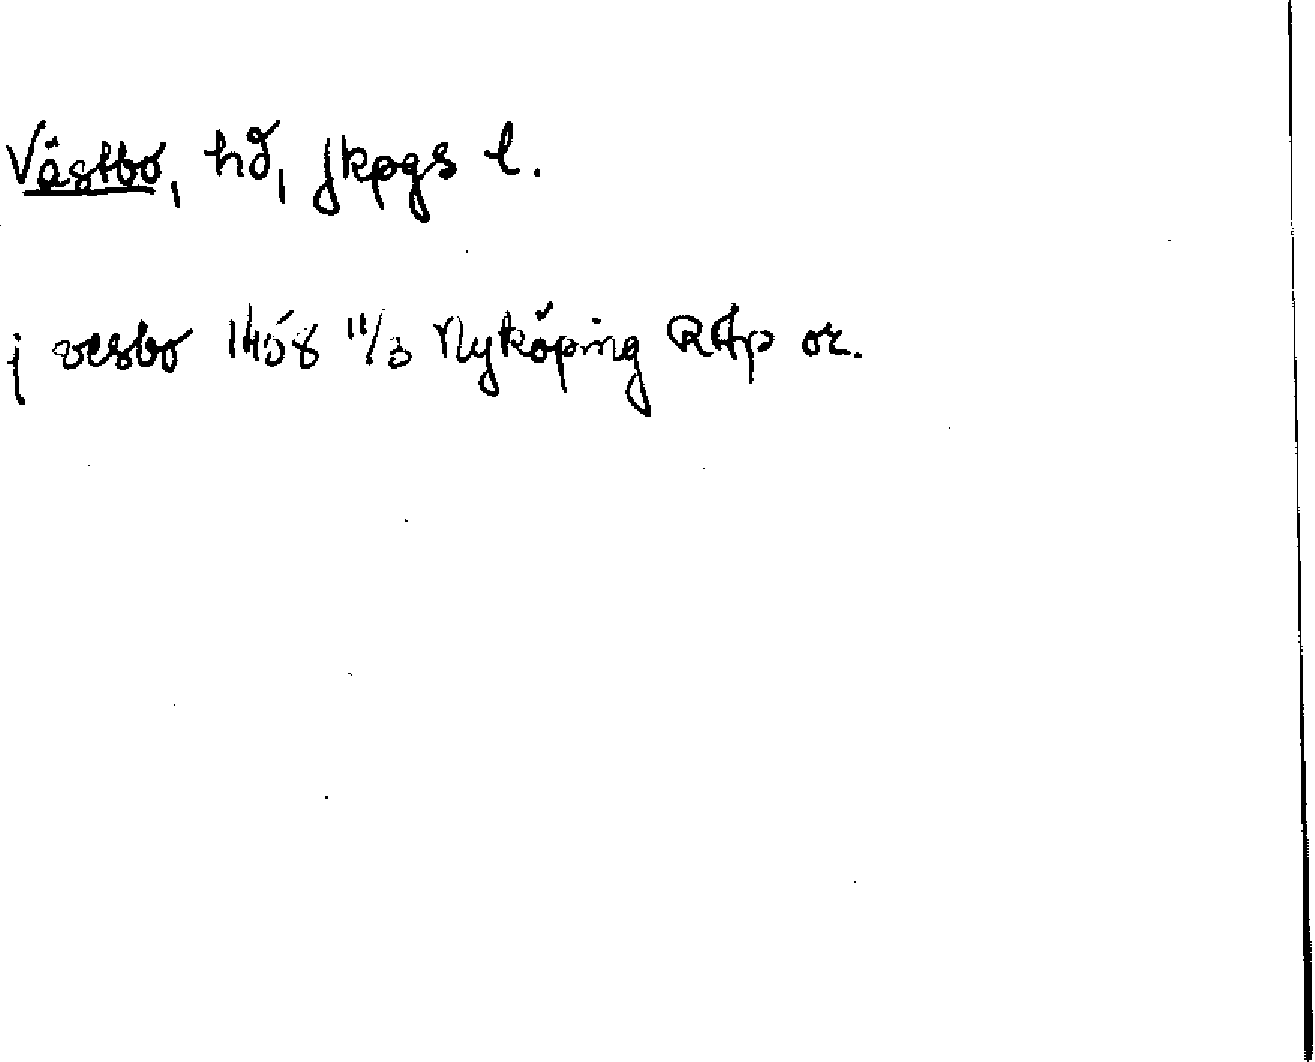 Västbo, hd, Jkpgs l.
j vesbo 1458 11/3 Nyköping RAp or.